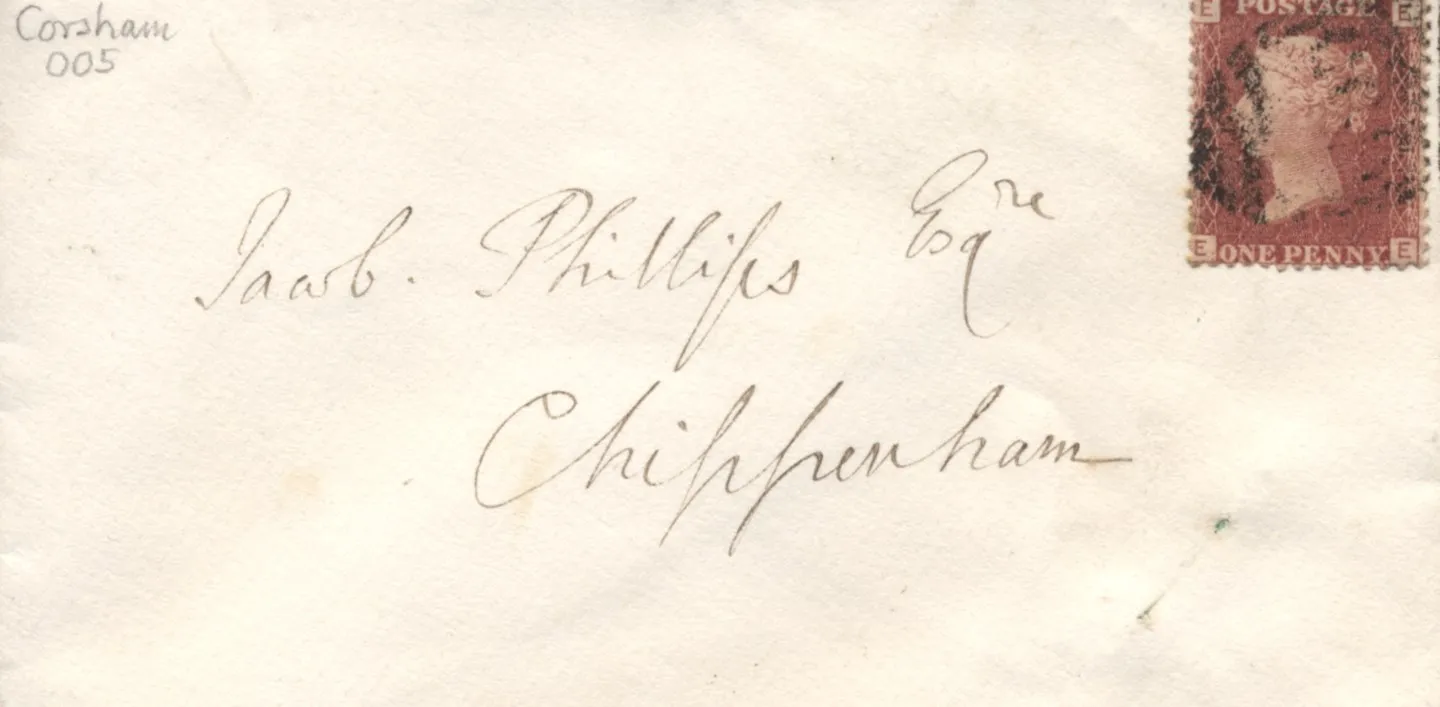 Corsham
005
E POSTAGE E
Jacob. Phillips Esqre
E ONE PENNY E
Chippenham